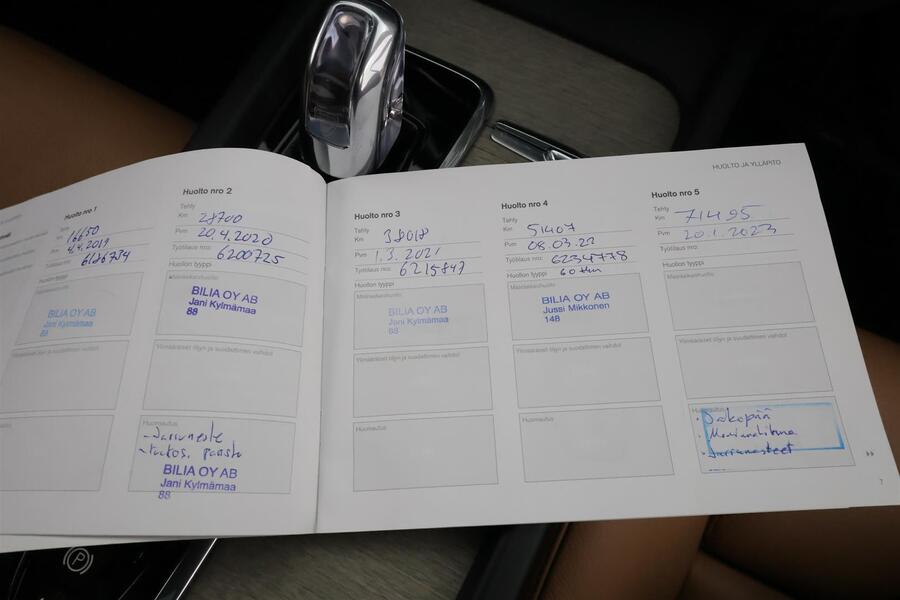 HUOLTO JA YLLÄPITO
Huolto nro 1
Tehty
Km 16650
Pvm 4.4.2019
6126734
Huollon tyyppi
BILIA OY AB
Jani Kylmämaa
88
Huolto nro 2
Tehty
Km 28700
Pvm 20.4.2020
Työtilaus nro: 6200725
Huollon tyyppi
Määräaikaishuolto
BILIA OY AB
Jani Kylmämaa
88
Ylimääräiset öljyn ja suodattimen vaihdot
Huomautus
- Jarruneste
BILIA OY AB
Jani Kylmämaa
88
Huolto nro 3
Tehty
Km 38018
Pvm 1.3.2021
Työtilaus nro: 6215847
Huollon tyyppi
Määräaikaishuolto
BILIA OY AB
Jani Kylmämaa
88
Ylimääräiset öljyn ja suodattimen vaihdot
Huomautus
Huolto nro 4
Tehty
Km 51407
Pvm 08.03.22
Työtilaus nro: 6234778
Huollon tyyppi 60 tkm
Määräaikaishuolto
BILIA OY AB
Jussi Mikkonen
148
Ylimääräiset öljyn ja suodattimen vaihdot
Huomautus
Huolto nro 5
Tehty
Km 71495
Pvm 20.1.2023
Työtilaus nro:
Huollon tyyppi
Määräaikaishuolto
Ylimääräiset öljyn ja suodattimen vaihdot
Huomautus
• Jakopää
• Jarrunesteet
7
P